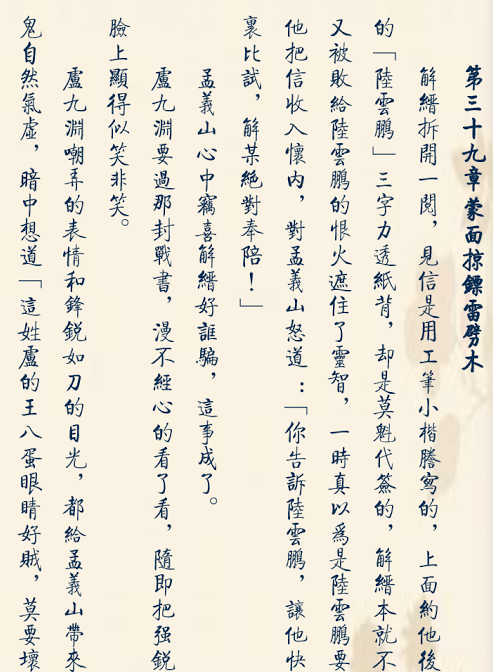 第三十九章 蒙面掠鏢雷劈木
解縉拆開一閱，見信是用工筆小楷謄寫的，上面約他後
的「陸雲鵬」三字力透紙背，却是莫魁代簽的，解縉本就不
又被敗給陸雲鵬的恨火遮住了靈智，一時真以爲是陸雲鵬要
他把信收入懷内，對孟義山怒道：「你告訴陸雲鵬，讓他快
裏比試，解某絕對奉陪！」
孟義山心中竊喜解縉好誆騙，這事成了。
盧九淵要過那封戰書，漫不經心的看了看，隨即把强鋭
臉上顯得似笑非笑。
盧九淵嘲弄的表情和鋒鋭如刀的目光，都給孟義山帶來
鬼自然氣虛，暗中想道「這姓盧的王八蛋眼睛好賊，莫要壞